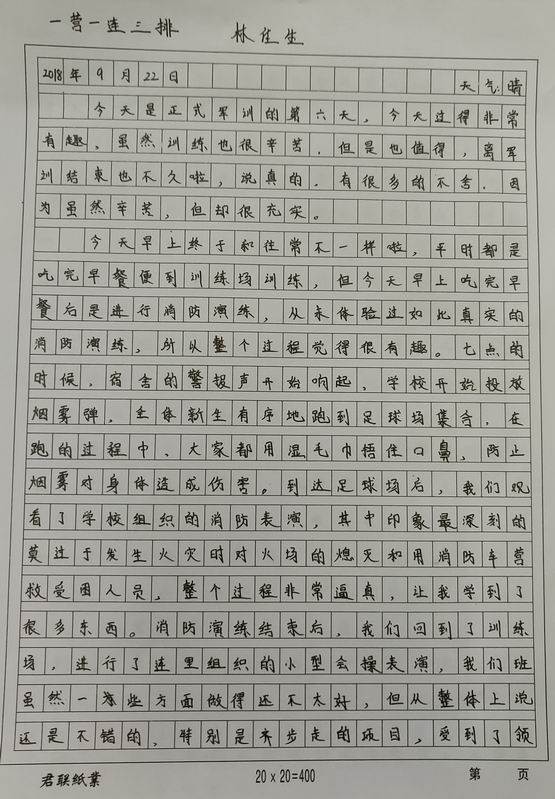 一营一连三排 林住生
2018年9月22日 天气:晴
今天是正式军训的第六天，今天过得非常
有趣。虽然训练也很辛苦，但是也值得，离军
训结束也不久啦，说真的，有很多的不舍，因
为虽然辛苦，但却很充实。
今天早上终于和往常不一样啦，平时都是
吃完早餐便到训练场训练，但今天早上吃完早
餐后是进行消防演练，从未体验过如此真实的
消防演练，所以整个过程觉得很有趣。七点的
时候，宿舍的警报声开始响起，学校开始投放
烟雾弹，全体新生有序地跑到足球场集合，在
跑的过程中，大家都用湿毛巾捂住口鼻，防止
烟雾对身体造成伤害。到达足球场后，我们观
看了学校组织的消防表演，其中印象最深刻的
莫过于发生火灾时对火场的熄灭和用消防车营
救受困人员，整个过程非常逼真，让我学到了
很多东西。消防演练结束后，我们回到了训练
场，进行了连里组织的小型会操表演，我们班
虽然一些方面做得还不太好，但从整体上说
还是不错的，特别是齐步走的项目，受到了领
君联纸业 20×20=400 第 页